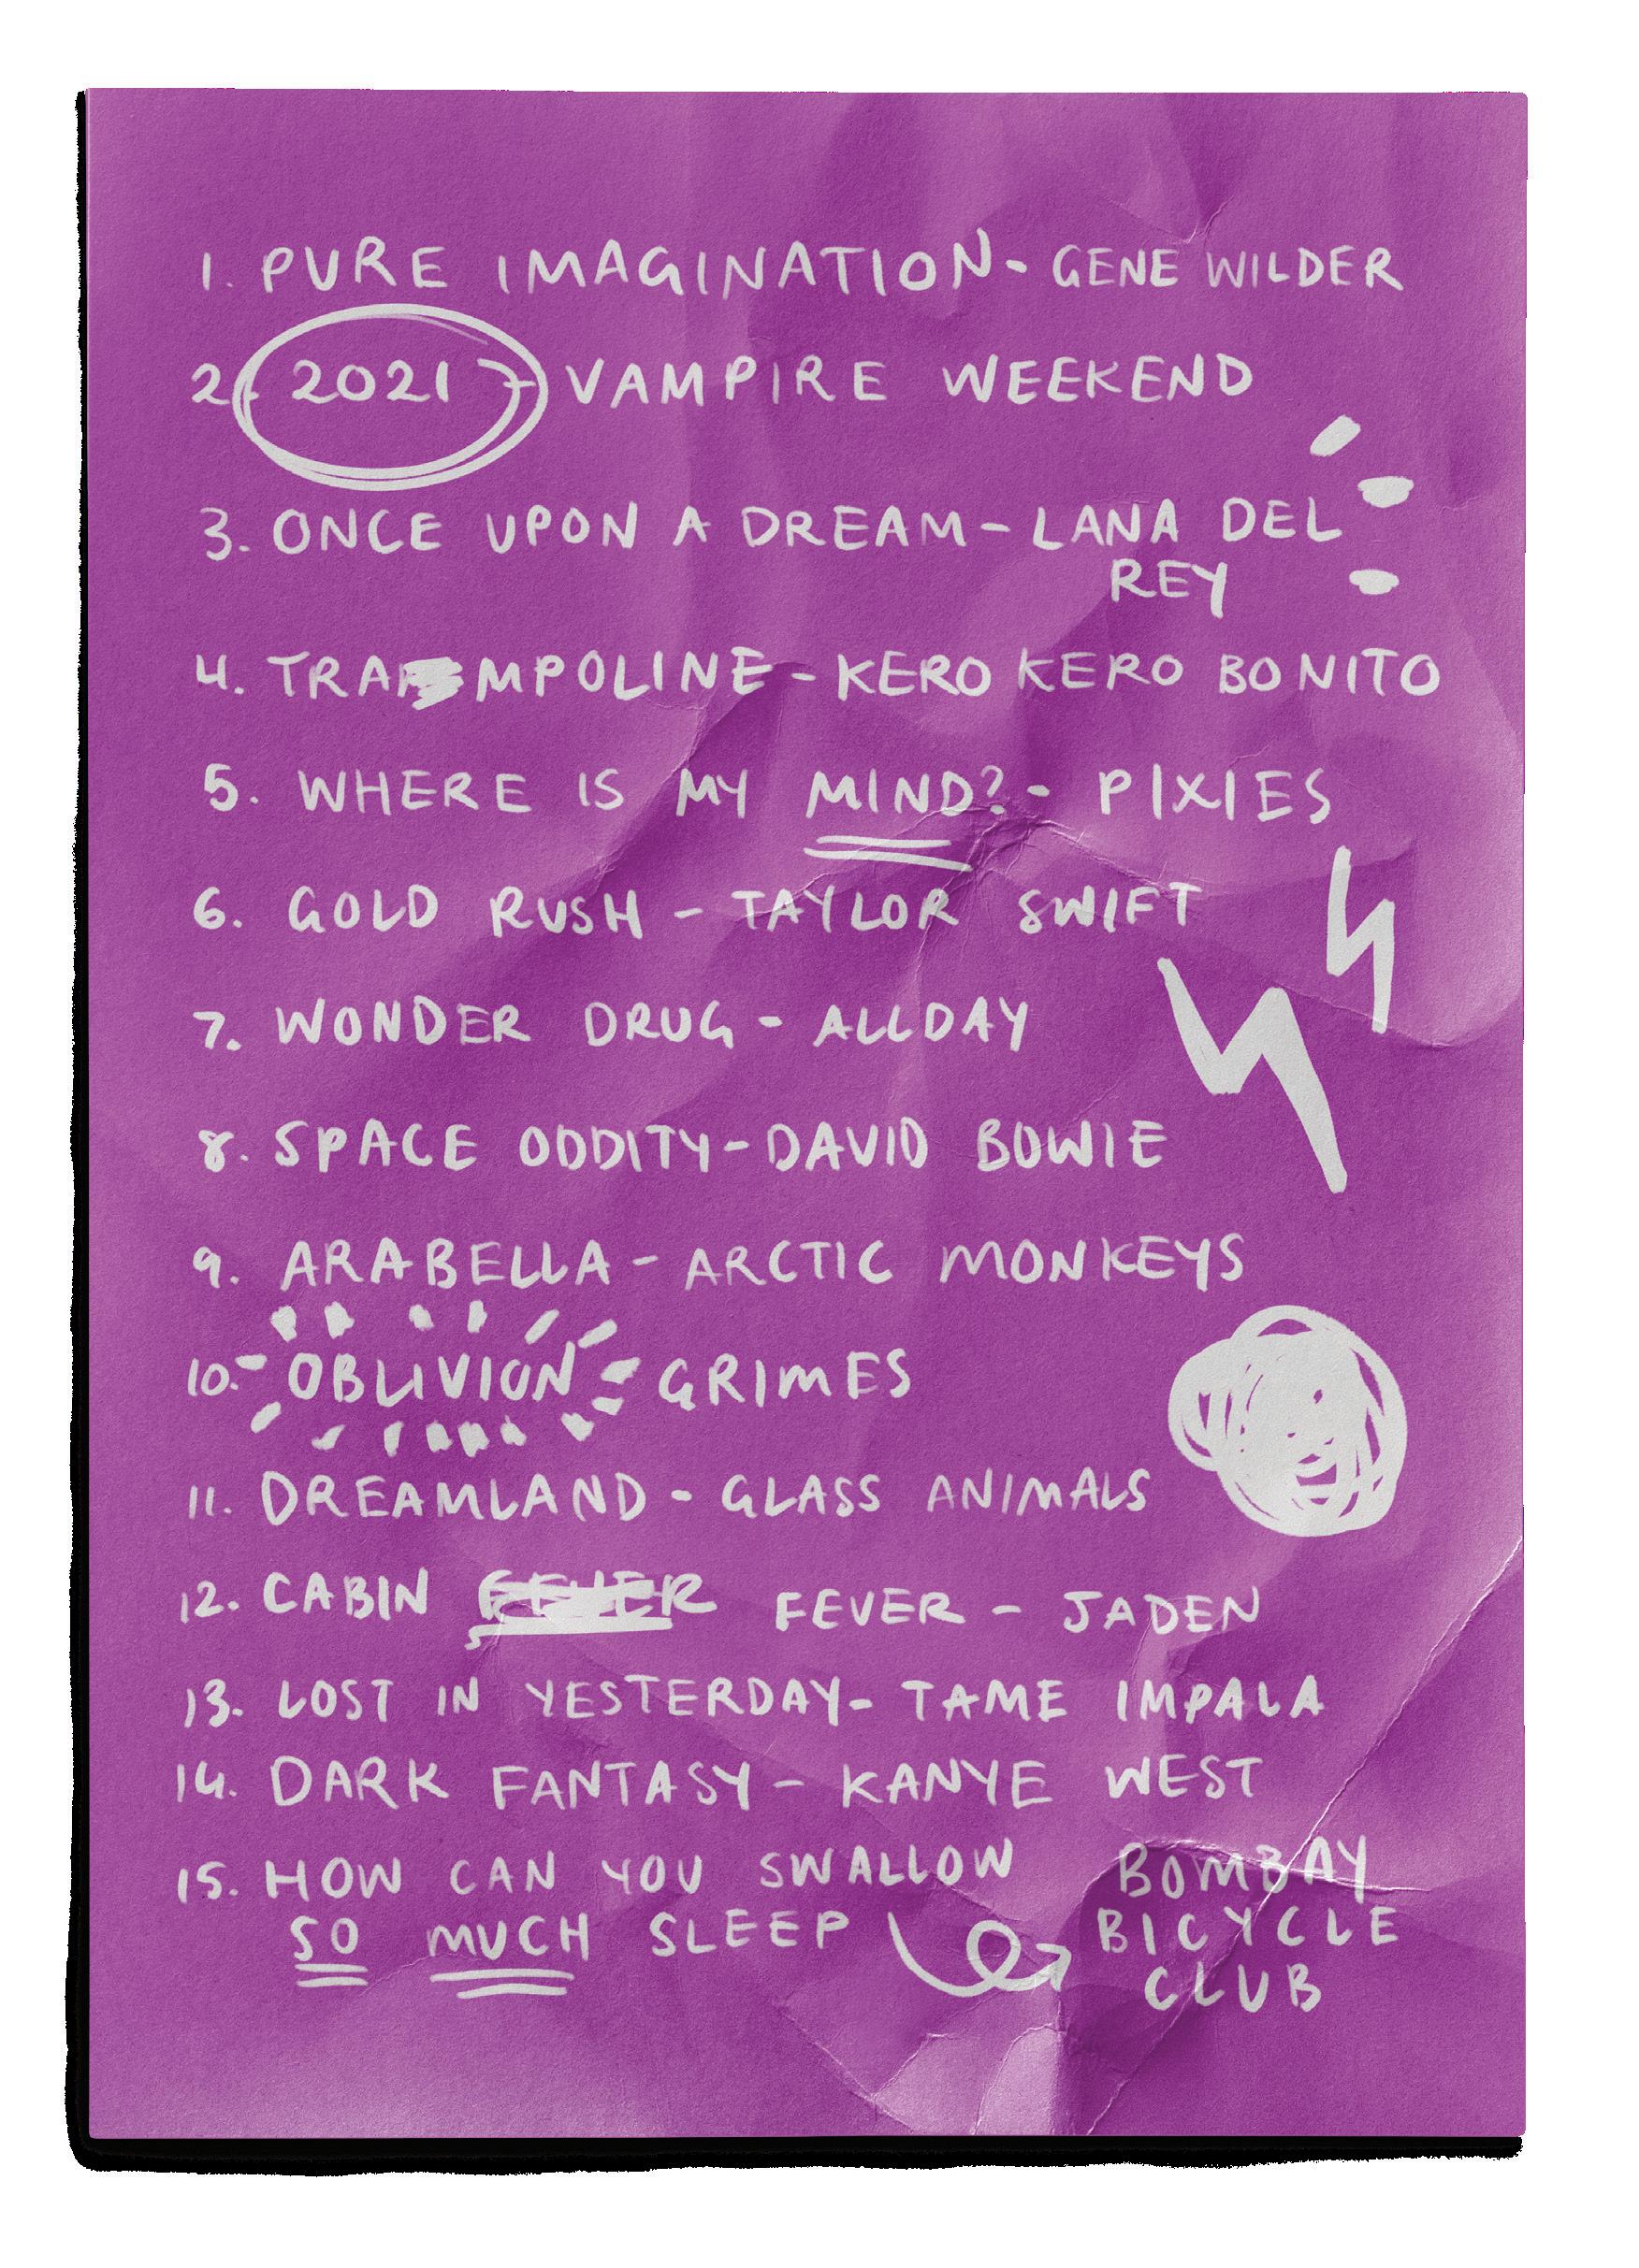 1. PURE IMAGINATION - GENE WILDER
2. 2021 - VAMPIRE WEEKEND
3. ONCE UPON A DREAM - LANA DEL
REY
4. TRAMPOLINE - KERO KERO BONITO
5. WHERE IS MY MIND? - PIXIES
6. GOLD RUSH - TAYLOR SWIFT
7. WONDER DRUG - ALLDAY
8. SPACE ODDITY - DAVID BOWIE
9. ARABELLA - ARCTIC MONKEYS
10. OBLIVION - GRIMES
11. DREAMLAND - GLASS ANIMALS
12. CABIN FEVER FEVER - JADEN
13. LOST IN YESTERDAY - TAME IMPALA
14. DARK FANTASY - KANYE WEST
15. HOW CAN YOU SWALLOW BOMBAY
SO MUCH SLEEP BICYCLE
CLUB